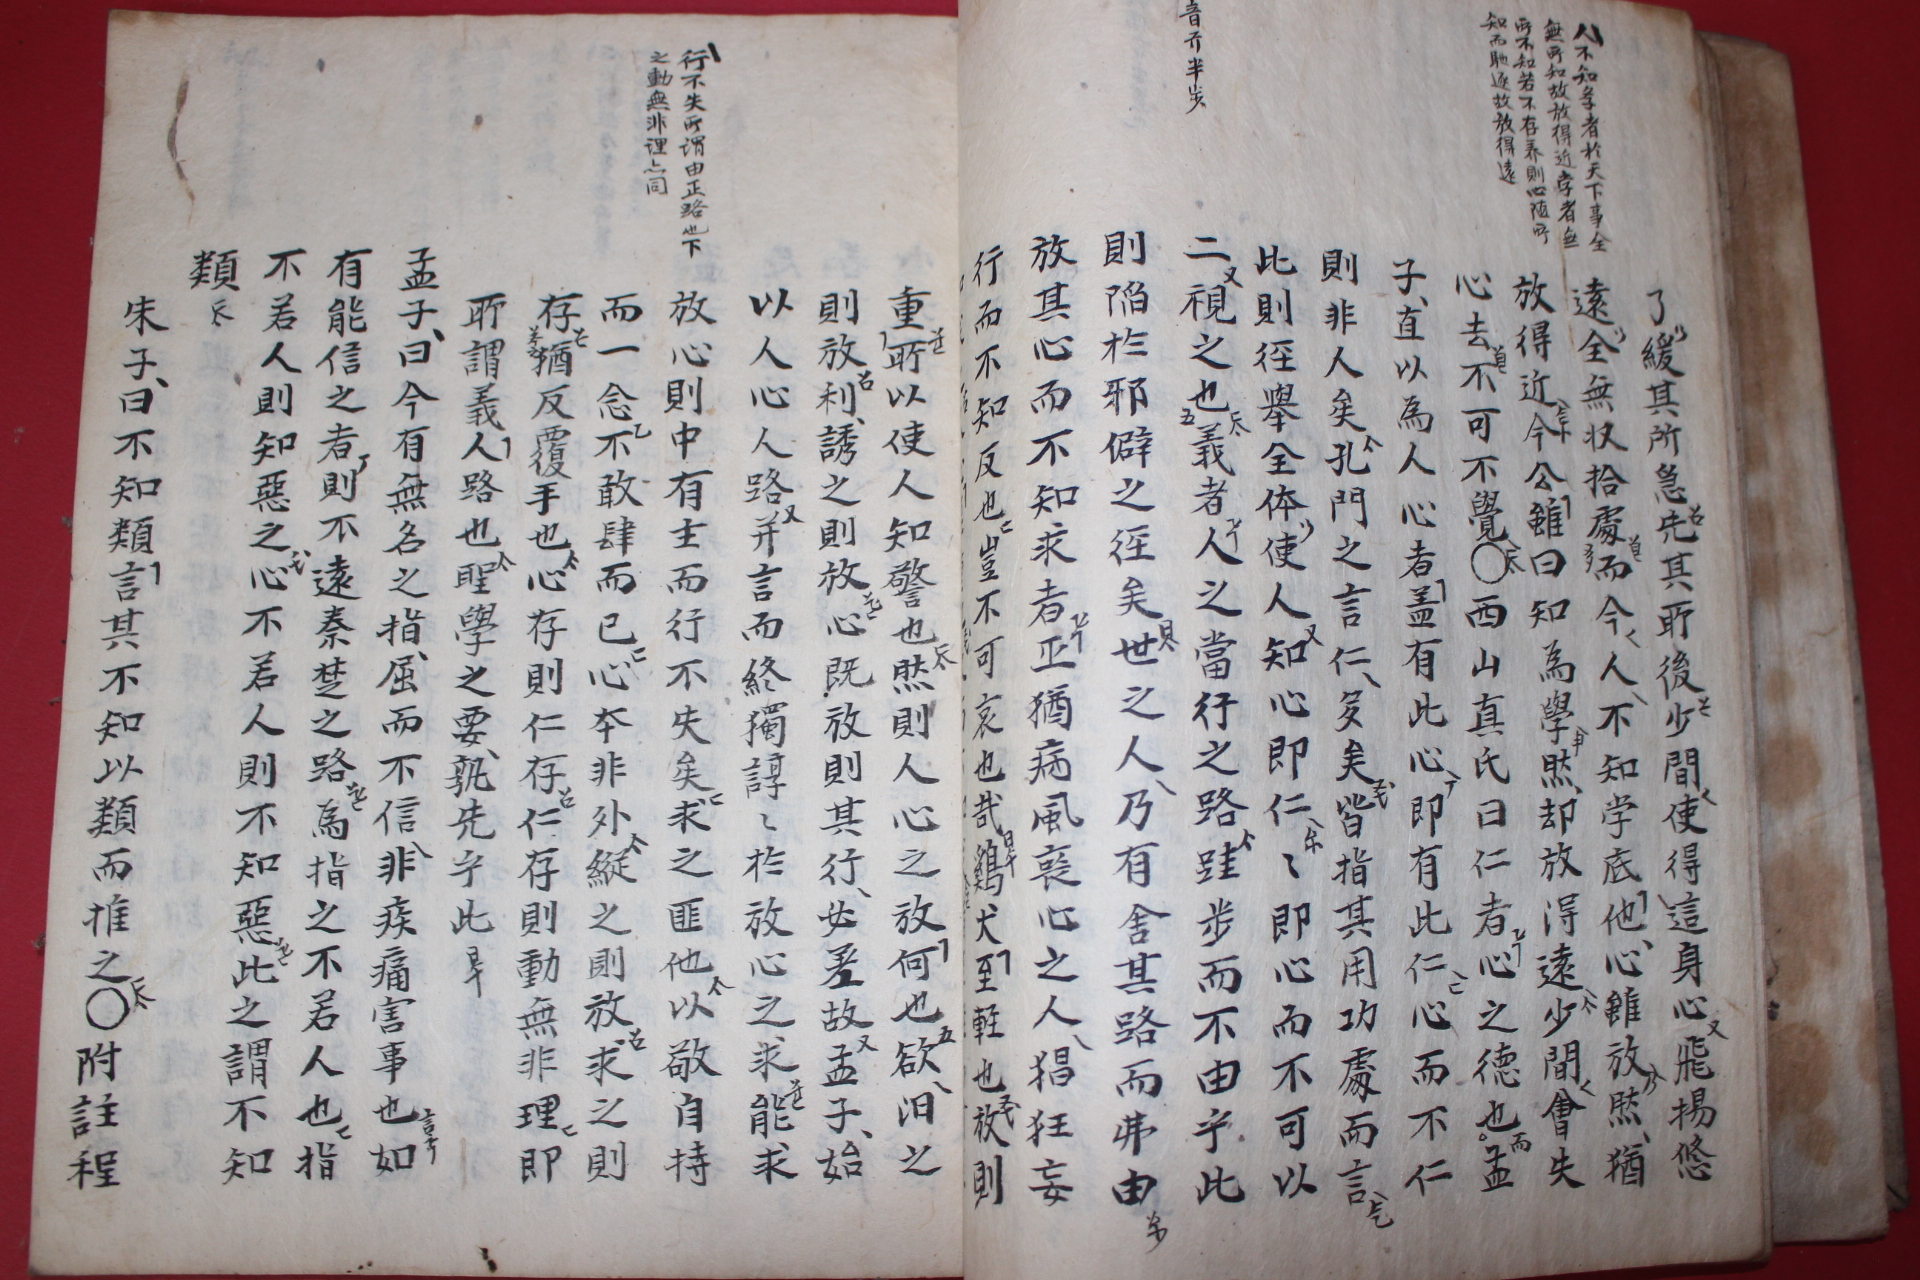 人不知孝者於天下事全
無所知故放得近孝者無
所不知若不存养則心随所
知而馳逐故放得遠
音亓半步
了緩其所急先其所後少間使得這身心飛揚悠
遠全無収拾處而今人不知学底他心雖放然猶
放得近今公雖曰知為學然却放得遠少間會失
心去不可不覺〇西山真氏曰仁者心之德也而孟
子直以為人心者盖有此心即有此仁心而不仁
則非人矣孔門之言仁多矣皆指其用功處而言
此則徑舉全体使人知心即仁〻即心而不可以
二視之也義者人之當行之路跬步而不由乎此
則陷於邪僻之徑矣世之人乃有舍其路而弗由
放其心而不知求者正猶病風喪心之人猖狂妄
行而不知反也豈不可哀也哉鷄犬至軽也放則
行不失所謂由正路也下
之動無非理亦同
重所以使人知警也然則人心之放何也欲汨之
則放利誘之則放心既放則其行必差故孟子始
以人心人路并言而終獨諄〻於放心之求能求
放心則中有主而行不失矣求之匪他以敬自持
而一念不敢肆而已心夲非外縱之則放求之則
存猶反覆手也心存則仁存仁存則動無非理即
所謂義人路也聖學之要孰先乎此
孟子曰今有無名之指屈而不信非疾痛害事也如
有能信之者則不遠秦楚之路為指之不若人也指
不若人則知惡之心不若人則不知惡此之謂不知
類
朱子曰不知類言其不知以類而推之〇附註程